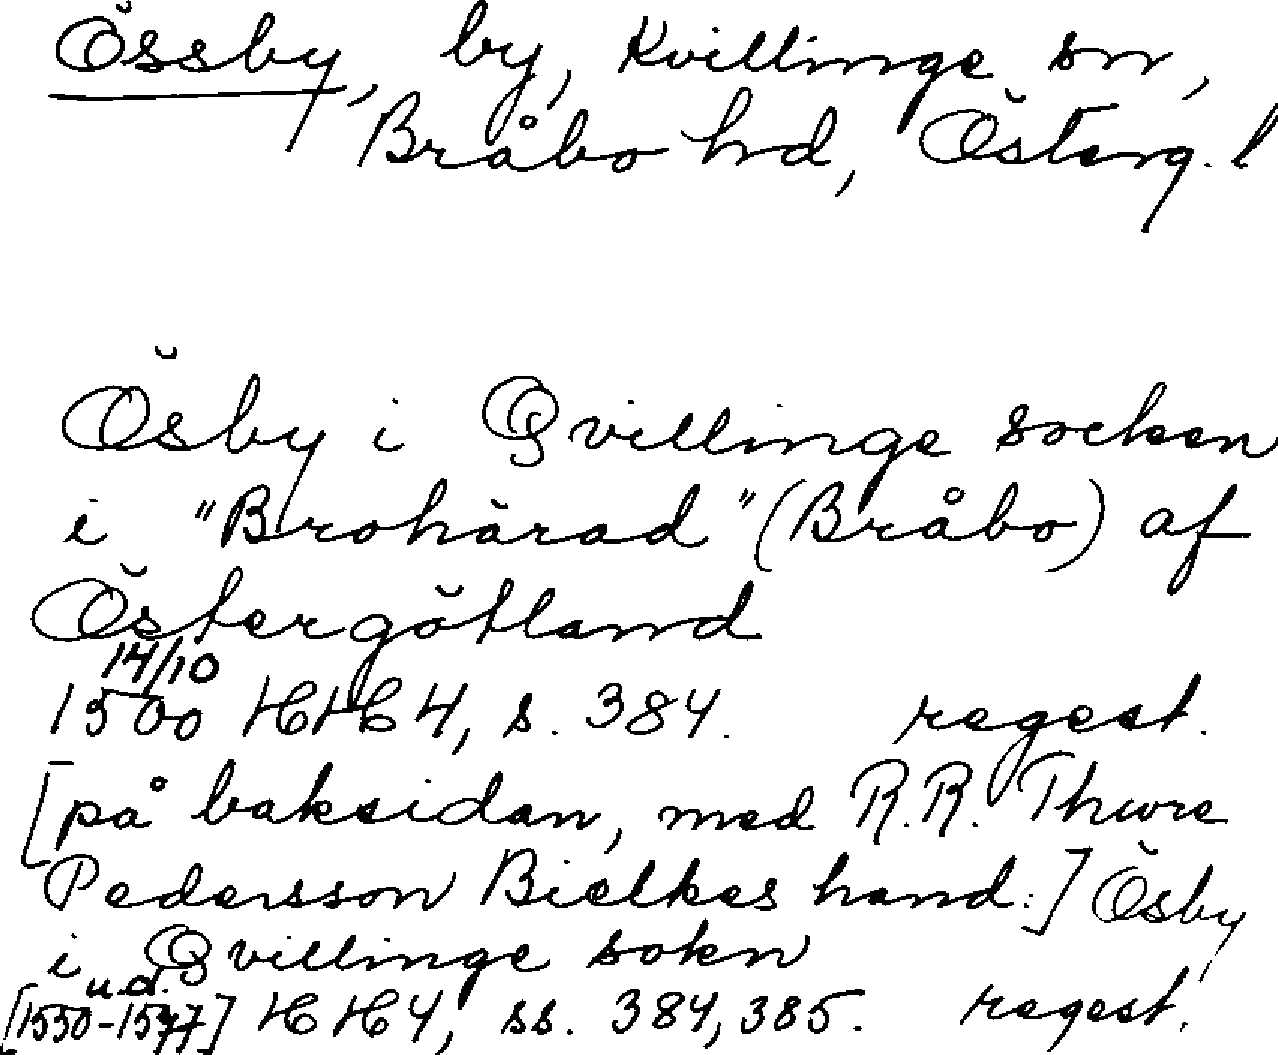 Össby, by, Kvillinge sn,
Bråbo hd, Österg. l
Ösby i Qvillinge socken
i "Brohärad" (Bråbo) af
Östergötland
14/10
1500 HH 4, s. 384. regest.
[på baksidan, med R.R. Thure
Pedersson Bielkes hand:] Ösby
i Qvillinge sokn
u.d.
[1550-1577] HH 4, ss. 384, 385. regest.